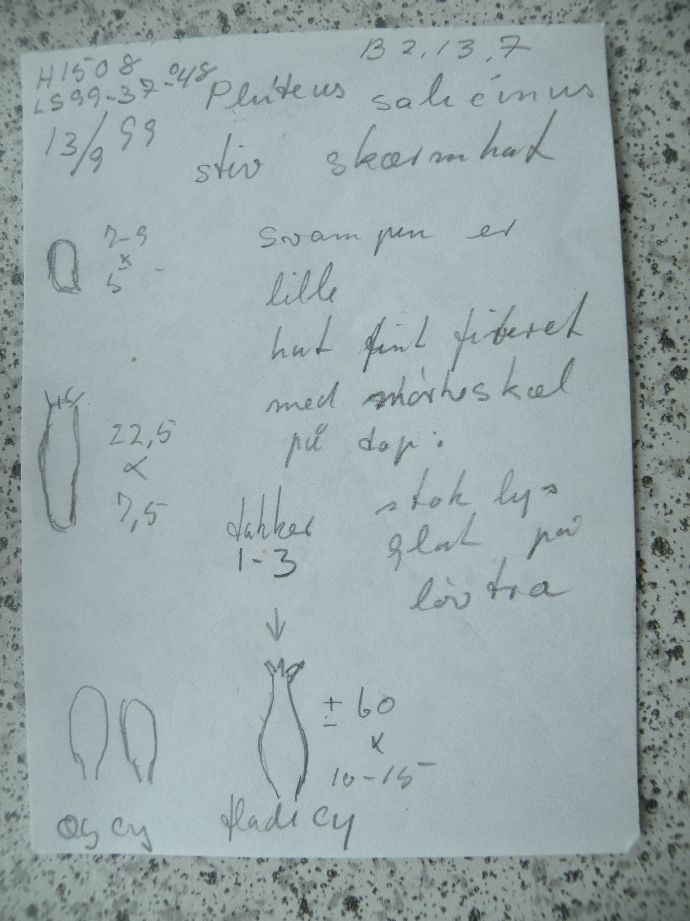 H1508
B 2,13,7
LS99-37-048
Pluteus salicinus
13/9 99
stiv skærmhat
7-9
x
5
svampen er
lille
hat fint fiberet
med mörke skæl
på top.
22,5
x
7,5
stok lys
glat på
lövtræ
takker
1-3
± 60
x
10-15
Æg cy
flade cy